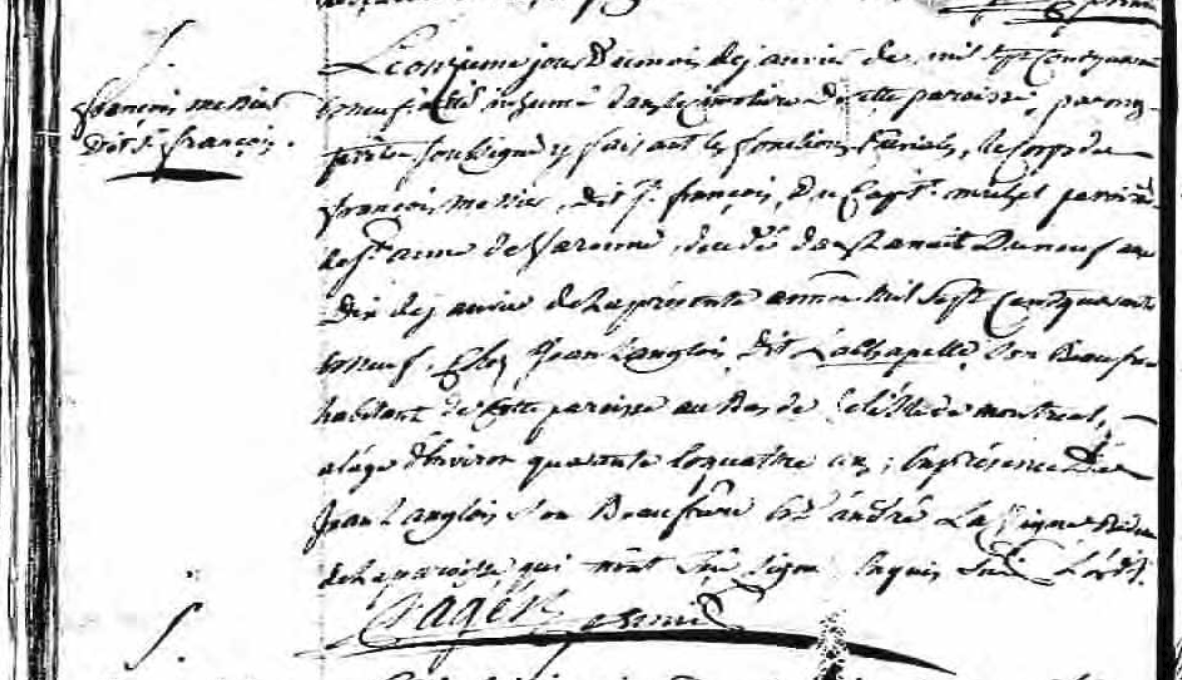 S.
françois messier
Dit St françois.
Le onzieme jour Du mois de janvier de mil sept Cent quarante
et neuf, a été inhumé dans le cimetiere de cette paroisse, par moy
prêtre soussigné y faisant les fonctions Curiales, le Corps de
françois Messier, Dit St. françois, Du Capt. michel paroisse
de Ste anne de Varenne, decedé dans la nuit Du neuf au
Dix de janvier de la presente année Mil Sept Cent quarante
et neuf, Chez Jean Langlois Dit Lachapelle, son Beaufrere
habitant de cette paroisse au Bas de L'isle de montreal,
a l'age d'Environ quarante et quatre ans; En présence de
Jean Langlois son Beaufrere et d'andré La
de la paroisse, qui n'ont Sçu signer Enquis Suiv. L'ord.
Chagén prêtre
S.